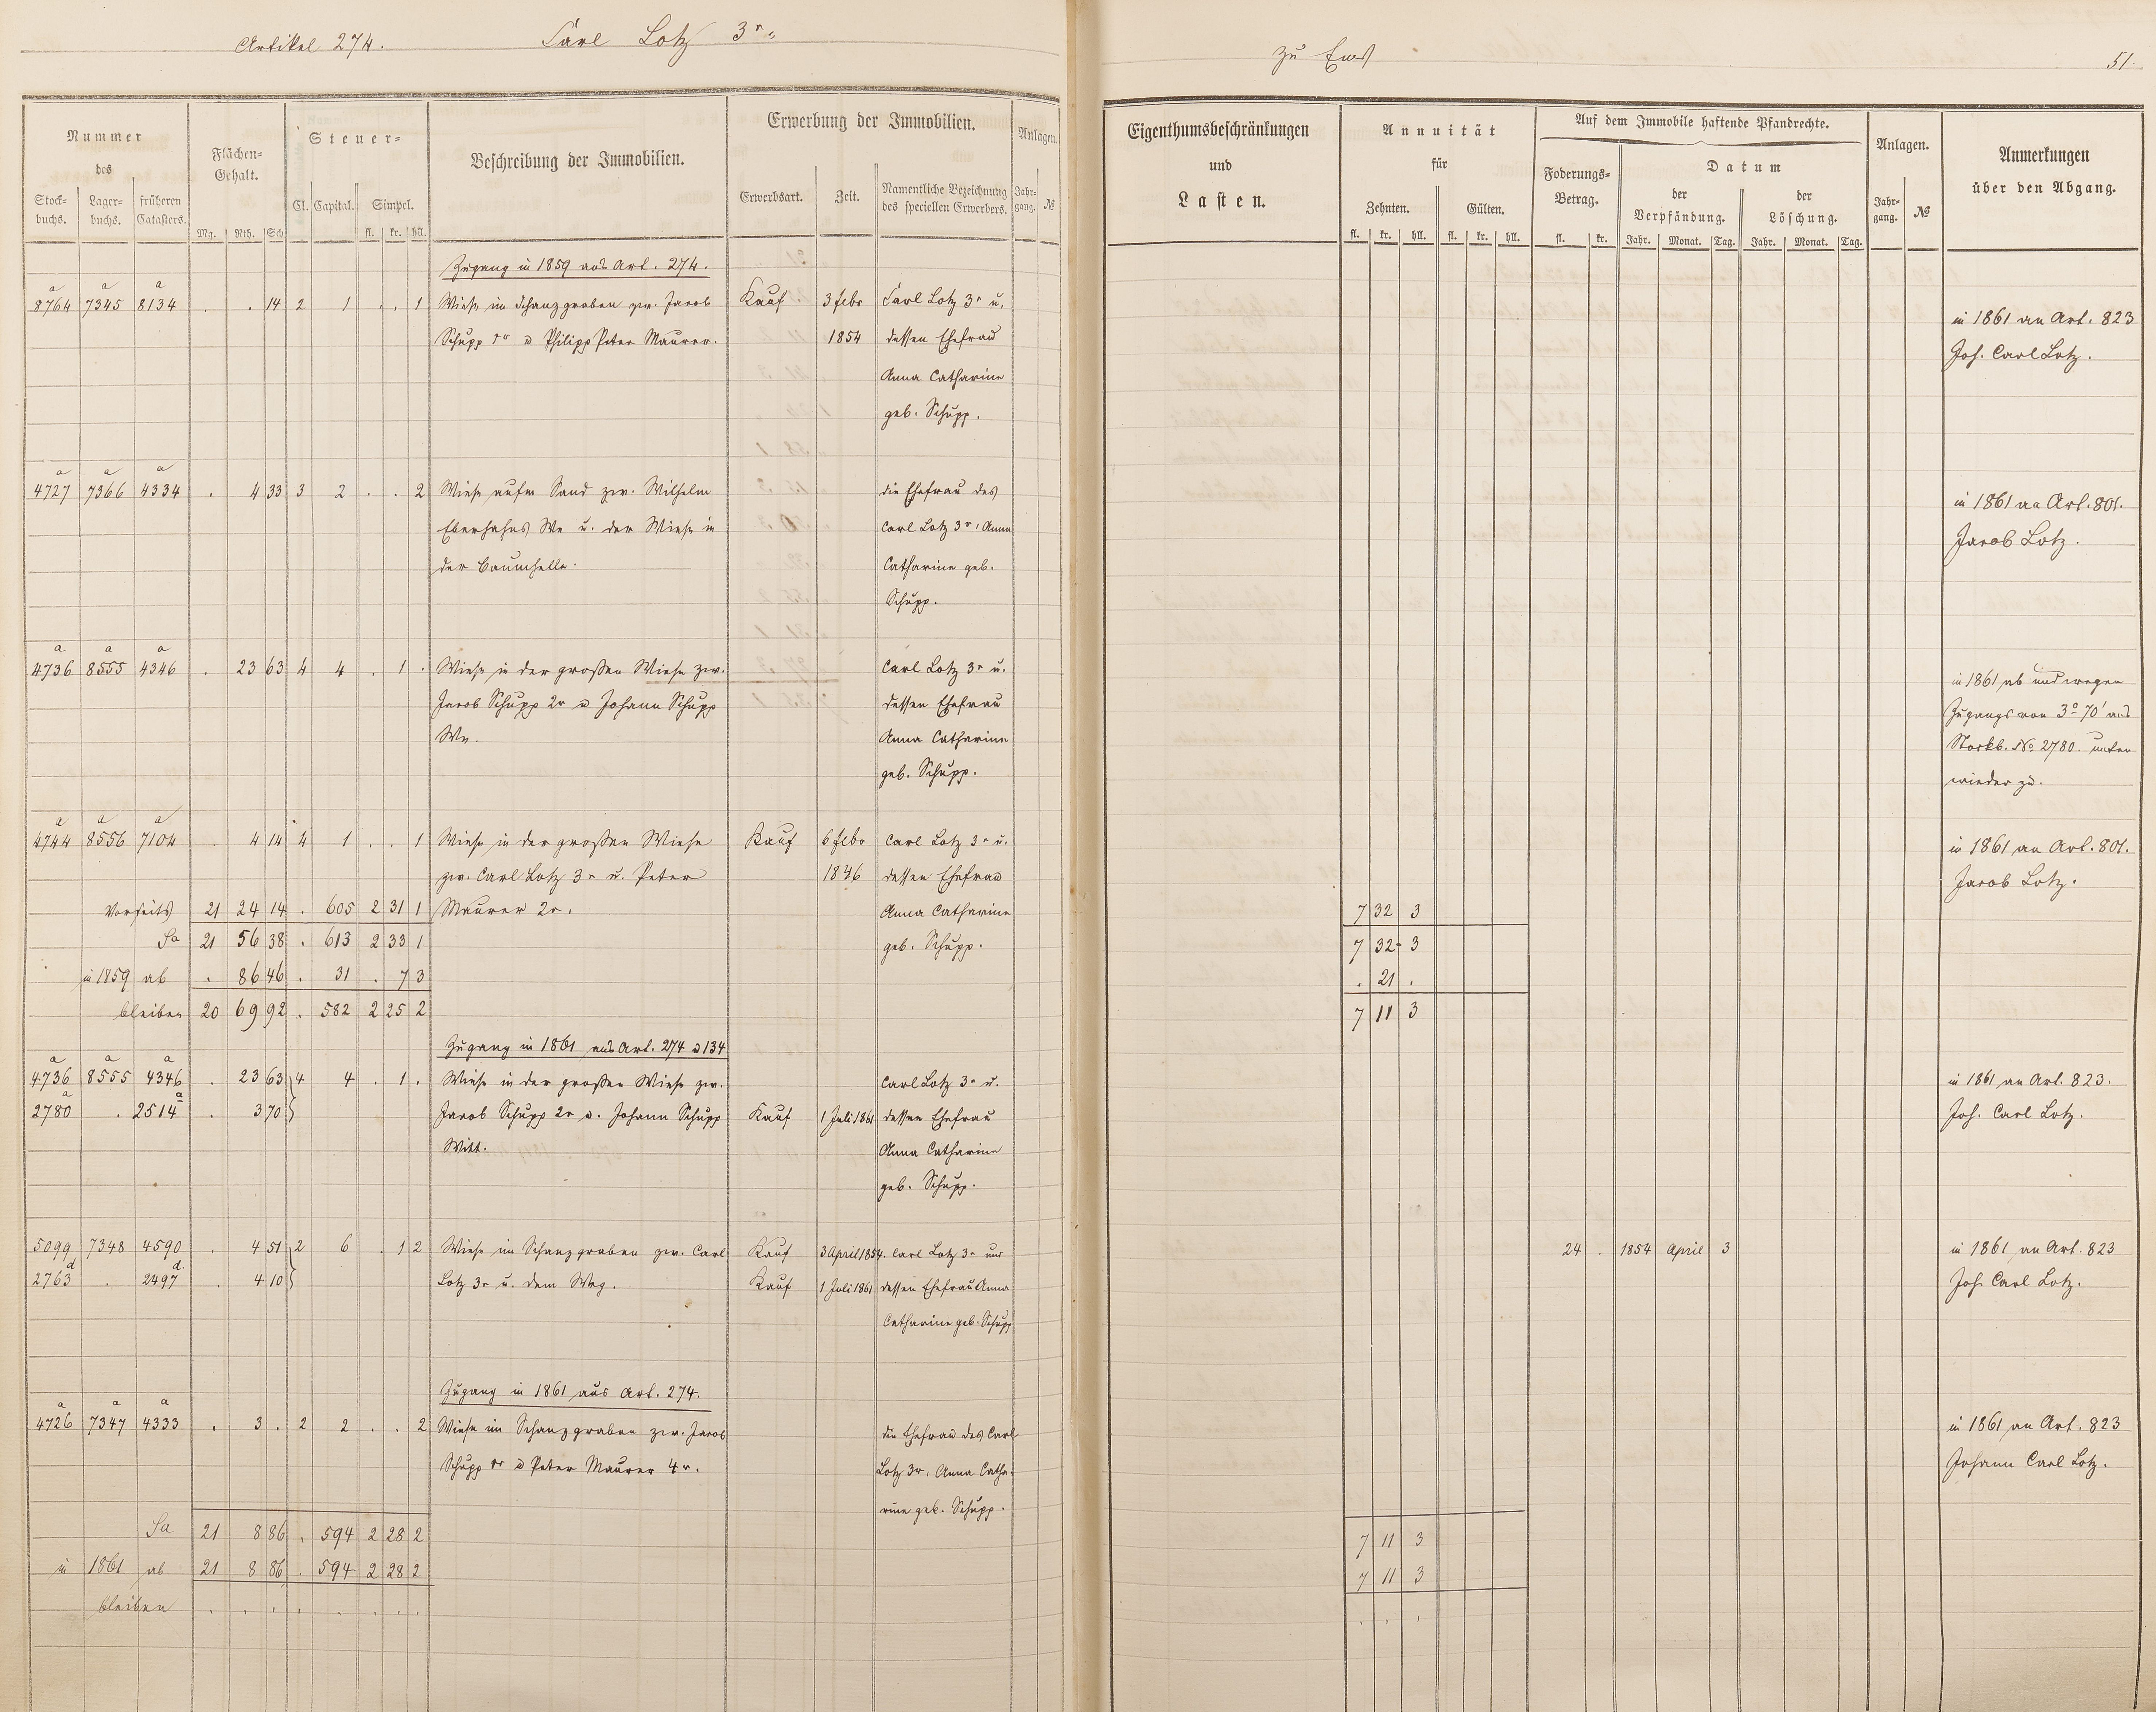 Artikel 274. Carl Lotz 3r. zu Ems 51.
Nummer des
Stock-buchs. Lager-buchs. früheren Catasters.
Flächen-Gehalt.
Mg. Rth. Sch.
Steuer-
Cl. Capital. Simpel.
fl. kr. hll.
Beschreibung der Immobilien.
Erwerbung der Immobilien.
Erwerbsart. Zeit. Namentliche Bezeichnung des speciellen Erwerbers.
Anlagen.
Jahr-gang. №
Eigenthumsbeschränkungen
und
Lasten.
Annuität
für
Zehnten. Gülten.
fl. kr. hll. fl. kr. hll.
Auf dem Immobile haftende Pfandrechte.
Foderungs-Betrag.
fl. kr.
Datum
der Verpfändung. der Löschung.
Jahr. Monat. Tag. Jahr. Monat. Tag.
Anlagen.
Jahr-gang. №
Anmerkungen
über den Abgang.
Zugang in 1859 aus Art. 274.
a a a
8764 7345 8134 . . 14 2 1 . . 1 Wiese im Schanzgraben zw. Jacob Kauf 3 Febr Carl Lotz 3r u. in 1861 an Art. 823
Schupp 1r u Philipp Peter Maurer. 1854 dessen Ehefrau Joh. Carl Lotz.
Anna Catharine
geb. Schupp.
a a a
4727 7366 4334 . 4 33 3 2 . . 2 Wiese aufm Sand zw. Wilhelm die Ehefrau des in 1861 an Art. 801.
Eberhahns We u. der Wiese in Carl Lotz 3r, Anna Jacob Lotz.
der Baumhelle. Catharine geb.
Schupp.
a a a
4736 8555 4346 . 23 63 4 4 . 1 . Wiese in der großen Wiese zw. Carl Lotz 3r u. in 1861 ab und wegen
Jacob Schupp 2r u Johann Schupp dessen Ehefrau Zugangs von 3° 70' aus
We. Anna Catharine Stockb. No 2780. unten
geb. Schupp. wieder zu.
a a a
4744 8556 7104 . 4 14 4 1 . . 1 Wiese in der großen Wiese Kauf 6 Febr Carl Lotz 3r u. in 1861 an Art. 801.
zw. Carl Lotz 3r u. Peter 1846 dessen Ehefrau Jacob Lotz.
Vorseits 21 24 14 . 605 2 31 1 Maurer 2r. Anna Catharine 7 32 3
Sa 21 56 38 . 613 2 33 1 geb. Schupp. 7 32 3
in 1859 ab . 86 46 . 31 . 7 3 . 21 .
bleiben 20 69 92 . 582 2 25 2 7 11 3
Zugang in 1861 aus Art. 274 u 134
a a a
4736 8555 4346 . 23 63 4 4 . 1 . Wiese in der großen Wiese zw. Carl Lotz 3r u. in 1861 an Art. 823.
a a
2780 . 2514 . 3 70 Jacob Schupp 2r u. Johann Schupp Kauf 1 Juli 1861 dessen Ehefrau Joh. Carl Lotz.
Witt. Anna Catharine
geb. Schupp.
5099 7348 4590 . 4 51 2 6 . 1 2 Wiese im Schanzgraben zw. Carl Kauf 3 April 1854. Carl Lotz 3r und 24 . 1854 April 3 in 1861 an Art. 823
d d.
2763 . 2497 . 4 10 Lotz 3r u. dem Weg. Kauf 1 Juli 1861 dessen Ehefrau Anna Joh. Carl Lotz.
Catharine geb. Schupp
Zugang in 1861 aus Art. 274.
a a a
4726 7347 4333 . 3 . 2 2 . . 2 Wiese im Schanzgraben zw. Jacob die Ehefrau des Carl in 1861 an Art. 823
Schupp 1r u Peter Maurer 4r. Lotz 3r, Anna Catha- Johann Carl Lotz.
rine geb. Schupp.
Sa 21 8 86 . 594 2 28 2 7 11 3
in 1861 ab 21 8 86 . 594 2 28 2 7 11 3
bleiben . . . . . . . . . . .